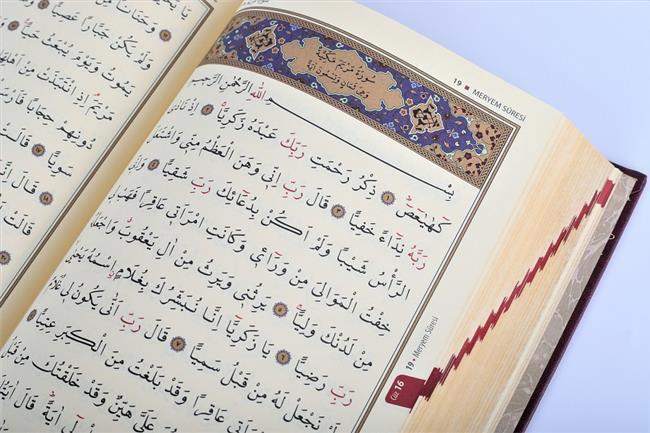 19 • MERYEM SÛRESİ
سُورَةُ مَرْيَمَ مَكِّيَّةٌ
وَهِيَ ثَمَانٍ وَتِسْعُونَ اٰيَةً
بِسْمِ اللهِ الرَّحْمٰنِ الرَّحِيمِ
كٓهٰيٰعٓصٓ ﴿١﴾ ذِكْرُ رَحْمَتِ رَبِّكَ عَبْدَهُ زَكَرِيَّا ﴿٢﴾ اِذْ نَادٰى
رَبَّهُ نِدَٓاءً خَفِيًّا ﴿٣﴾ قَالَ رَبِّ اِنِّي وَهَنَ الْعَظْمُ مِنِّي وَاشْتَعَلَ
الرَّأْسُ شَيْبًا وَلَمْ اَكُنْ بِدُعَٓائِكَ رَبِّ شَقِيًّا ﴿٤﴾ وَاِنِّي
خِفْتُ الْمَوَالِيَ مِنْ وَرَٓائِي وَكَانَتِ امْرَاَتِي عَاقِرًا فَهَبْ لِي
مِنْ لَدُنْكَ وَلِيًّا ﴿٥﴾ يَرِثُنِي وَيَرِثُ مِنْ اٰلِ يَعْقُوبَ وَاجْعَلْهُ
رَبِّ رَضِيًّا ﴿٦﴾ يَا زَكَرِيَّٓا اِنَّا نُبَشِّرُكَ بِغُلَامٍ اسْمُهُ يَحْيٰى
لَمْ نَجْعَلْ لَهُ مِنْ قَبْلُ سَمِيًّا ﴿٧﴾ قَالَ رَبِّ اَنّٰى يَكُونُ لِي غُلَامٌ
عَاقِرًا وَقَدْ بَلَغْتُ مِنَ الْكِبَرِ عِتِيًّا
عَلَيَّ هَيِّنٌ وَقَدْ خَلَقْتُكَ مِنْ قَبْلُ
اٰيَةً قَالَ
Cüz 16
19 • Meryem Sûresi
وَلَمْ يَكُنْ جَبَّارًا
يَمُوتُ وَيَوْمَ يُبْعَثُ حَيًّا
مَرْيَمَ اِذِ انْتَبَذَتْ مِنْ اَهْلِهَا
دُونِهِمْ حِجَابًا
سَوِيًّا ﴿١٧﴾ قَالَتْ
قَالَ
قَالَتْ